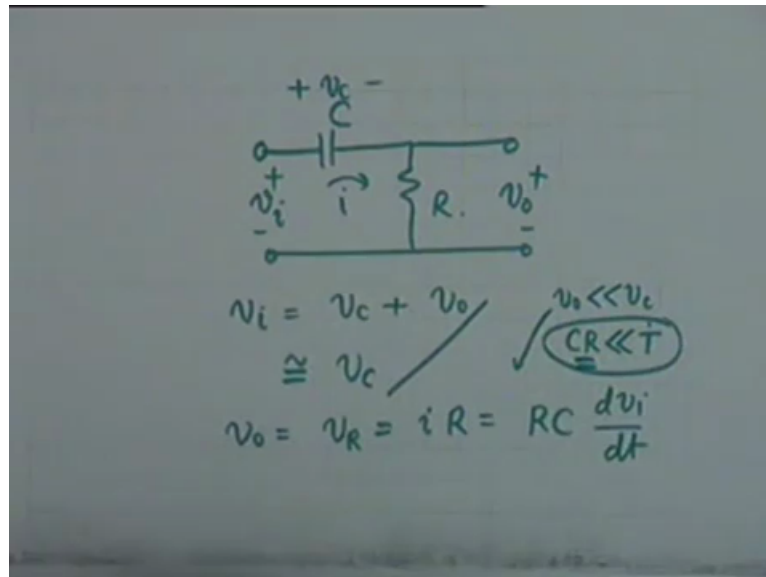 + v_C -
C
+ v_i - i R. v_o + -
v_i = v_C + v_o
v_o << v_C
≅ v_C
CR << T
v_o = v_R = i R = RC dv_i/dt